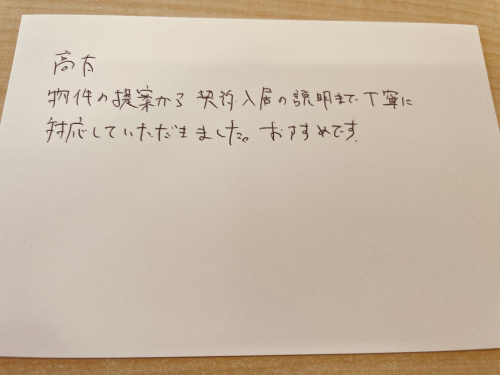 高方
物件の提案から 契約.入居の説明まで丁寧に
対応していただきました。おすすめです.